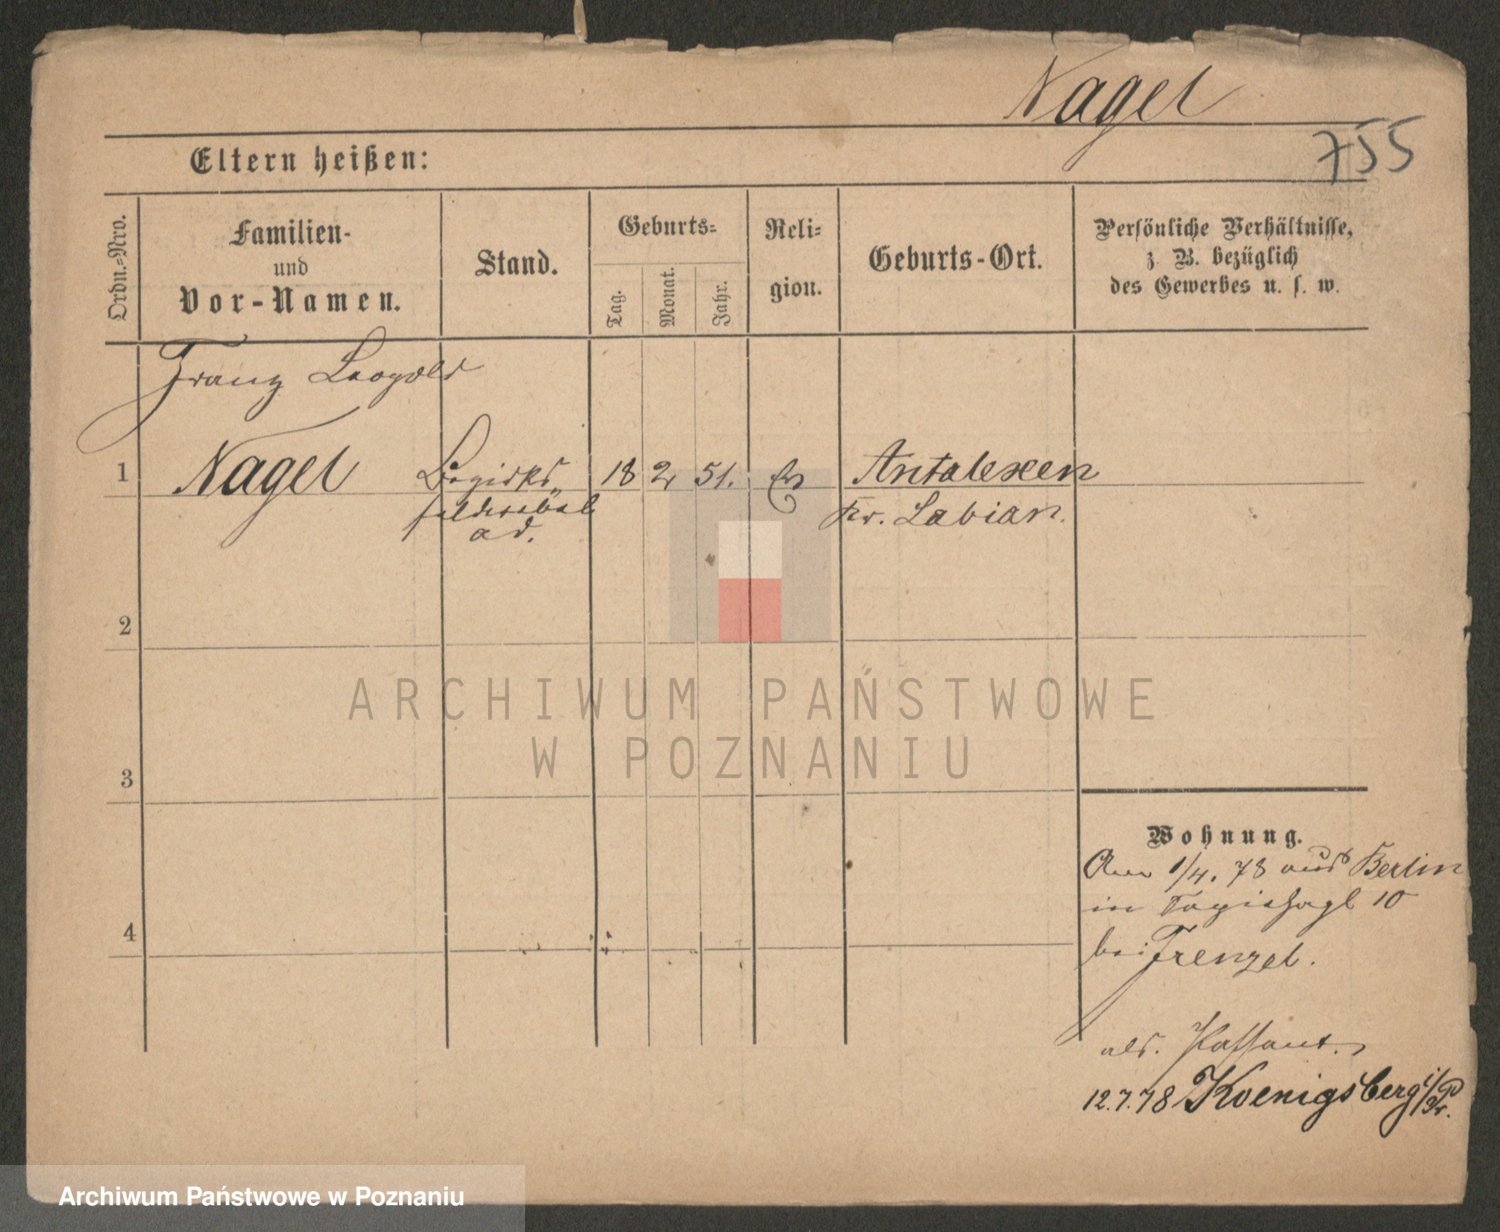 Nagel
755
Eltern heißen:
Ordn.-Nro.
Familien-
und
Vor-Namen.
Stand.
Geburts-
Tag.
Monat.
Jahr.
Reli-
gion.
Geburts-Ort.
Persönliche Verhältnisse,
z. B. bezüglich
des Gewerbes u. s. w.
Franz Leopold
1
Nagel
Bezirks
feldwebel
ad.
18
2
51.
Ev
Antalexen
Kr. Labian.
2
3
4
ARCHIWUM PAŃSTWOWE
W POZNANIU
Wohnung.
Am 1/4. 78 aus Berlin
in 10
bei Frenzel.
als. Passant.
12.7.78 Koenigsberg i/Pr.
Archiwum Państwowe w Poznaniu